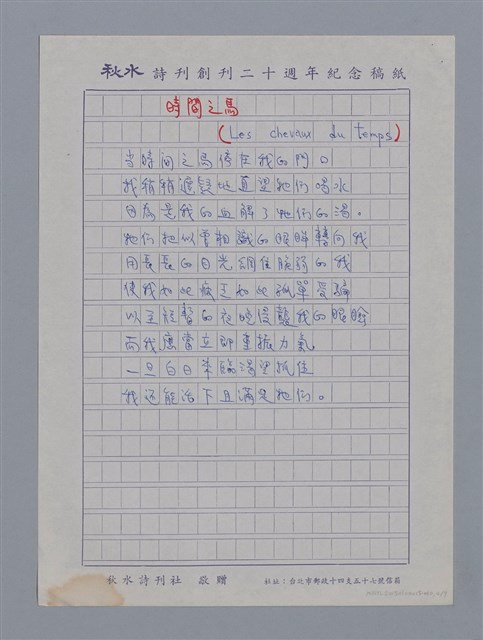 秋水詩刊創刊二十週年紀念稿紙
時間之馬
(Les chevaux du temps)
當時間之馬停在我的門口
我稍稍遲疑以直望牠們喝水
因為是我的血解了牠們的渴。
牠們把似曾相識的眼眸轉向我
用長長的目光綑住脆弱的我
使我如此疲乏如此孤單受騙
以至短暫的夜晚侵襲我的眼眸
而我應當立即重振力氣
一旦白日來臨渴望抓住
我還能活下且滿足牠們。
秋水詩刊社 敬贈
社址：台北市郵政十四支五十七號信箱